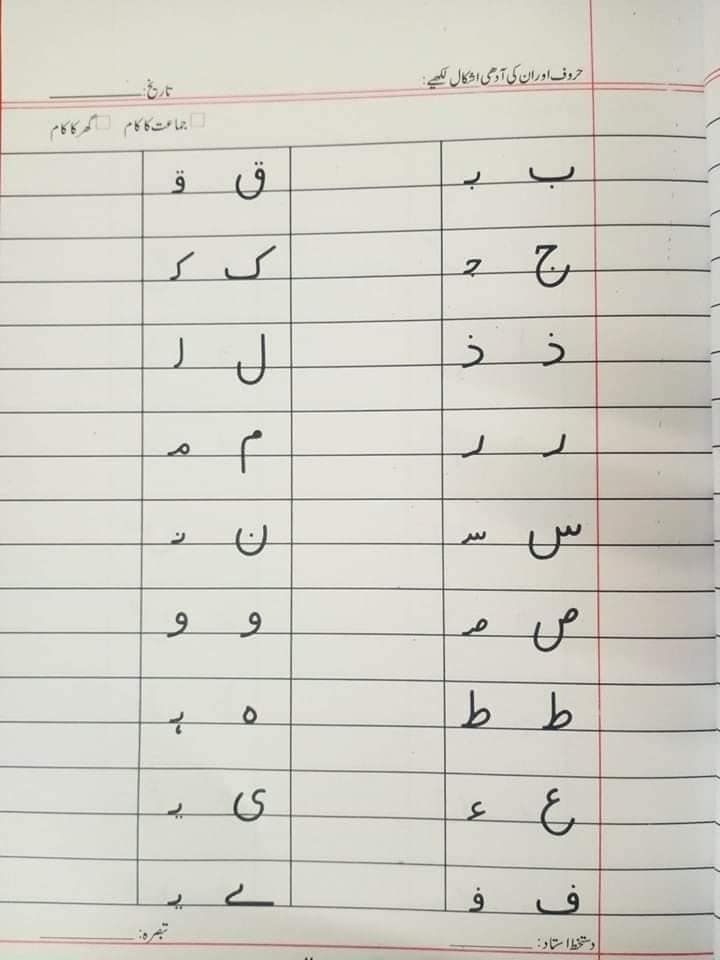 حروف اور ان کی آدھی اشکال لکھیے:
تاریخ:
جماعت کا کام گھر کا کام
ب بـ ق قـ
ج جـ ک کـ
ذ ذ ل لـ
ر ر م مـ
س سـ ن نـ
ص صـ و و
ط ط ہ ہـ
ع عـ ی یـ
ف فـ ے یـ
دستخط استاد: تبصرہ: